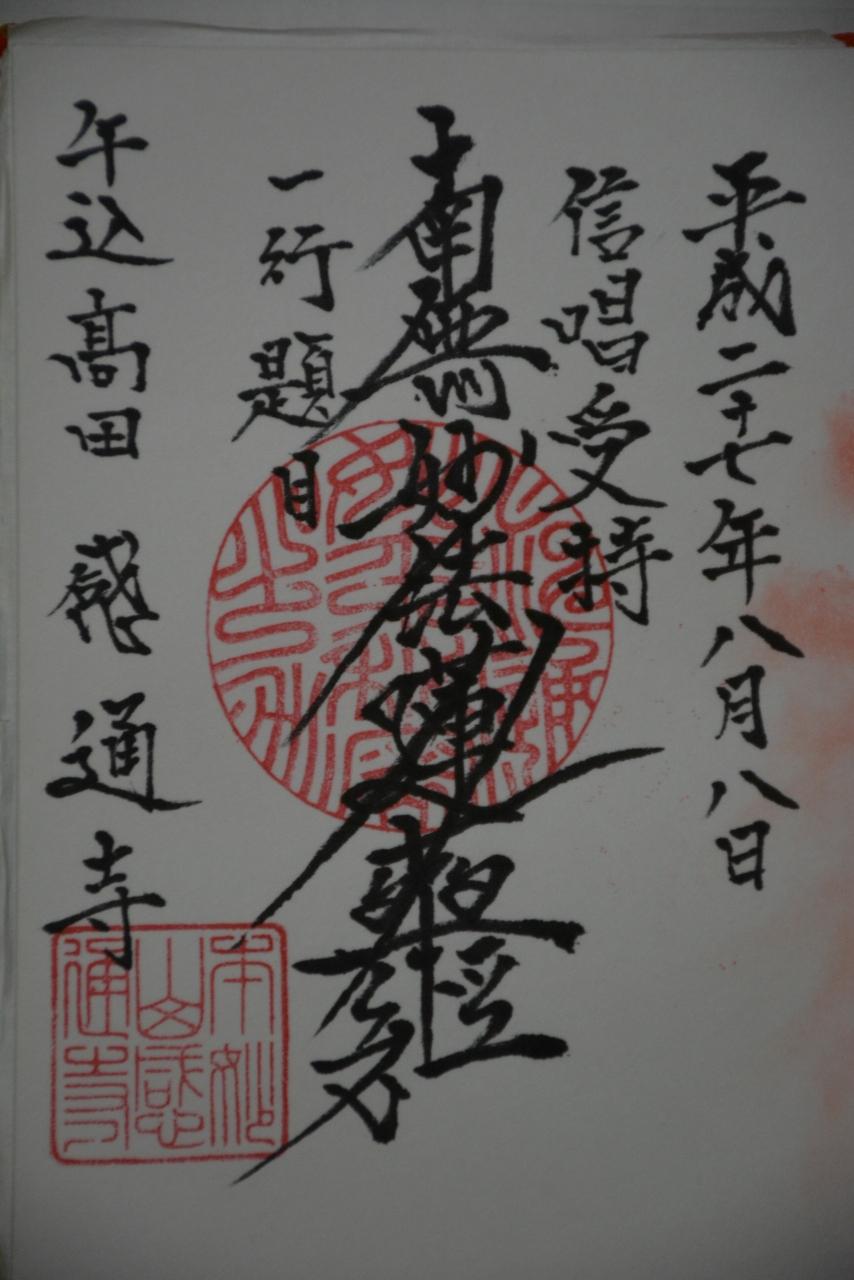 平成二十七年八月八日
信唱受持
南無妙法蓮華経
一行題目
牛込高田 感通寺
本妙
山感
通寺